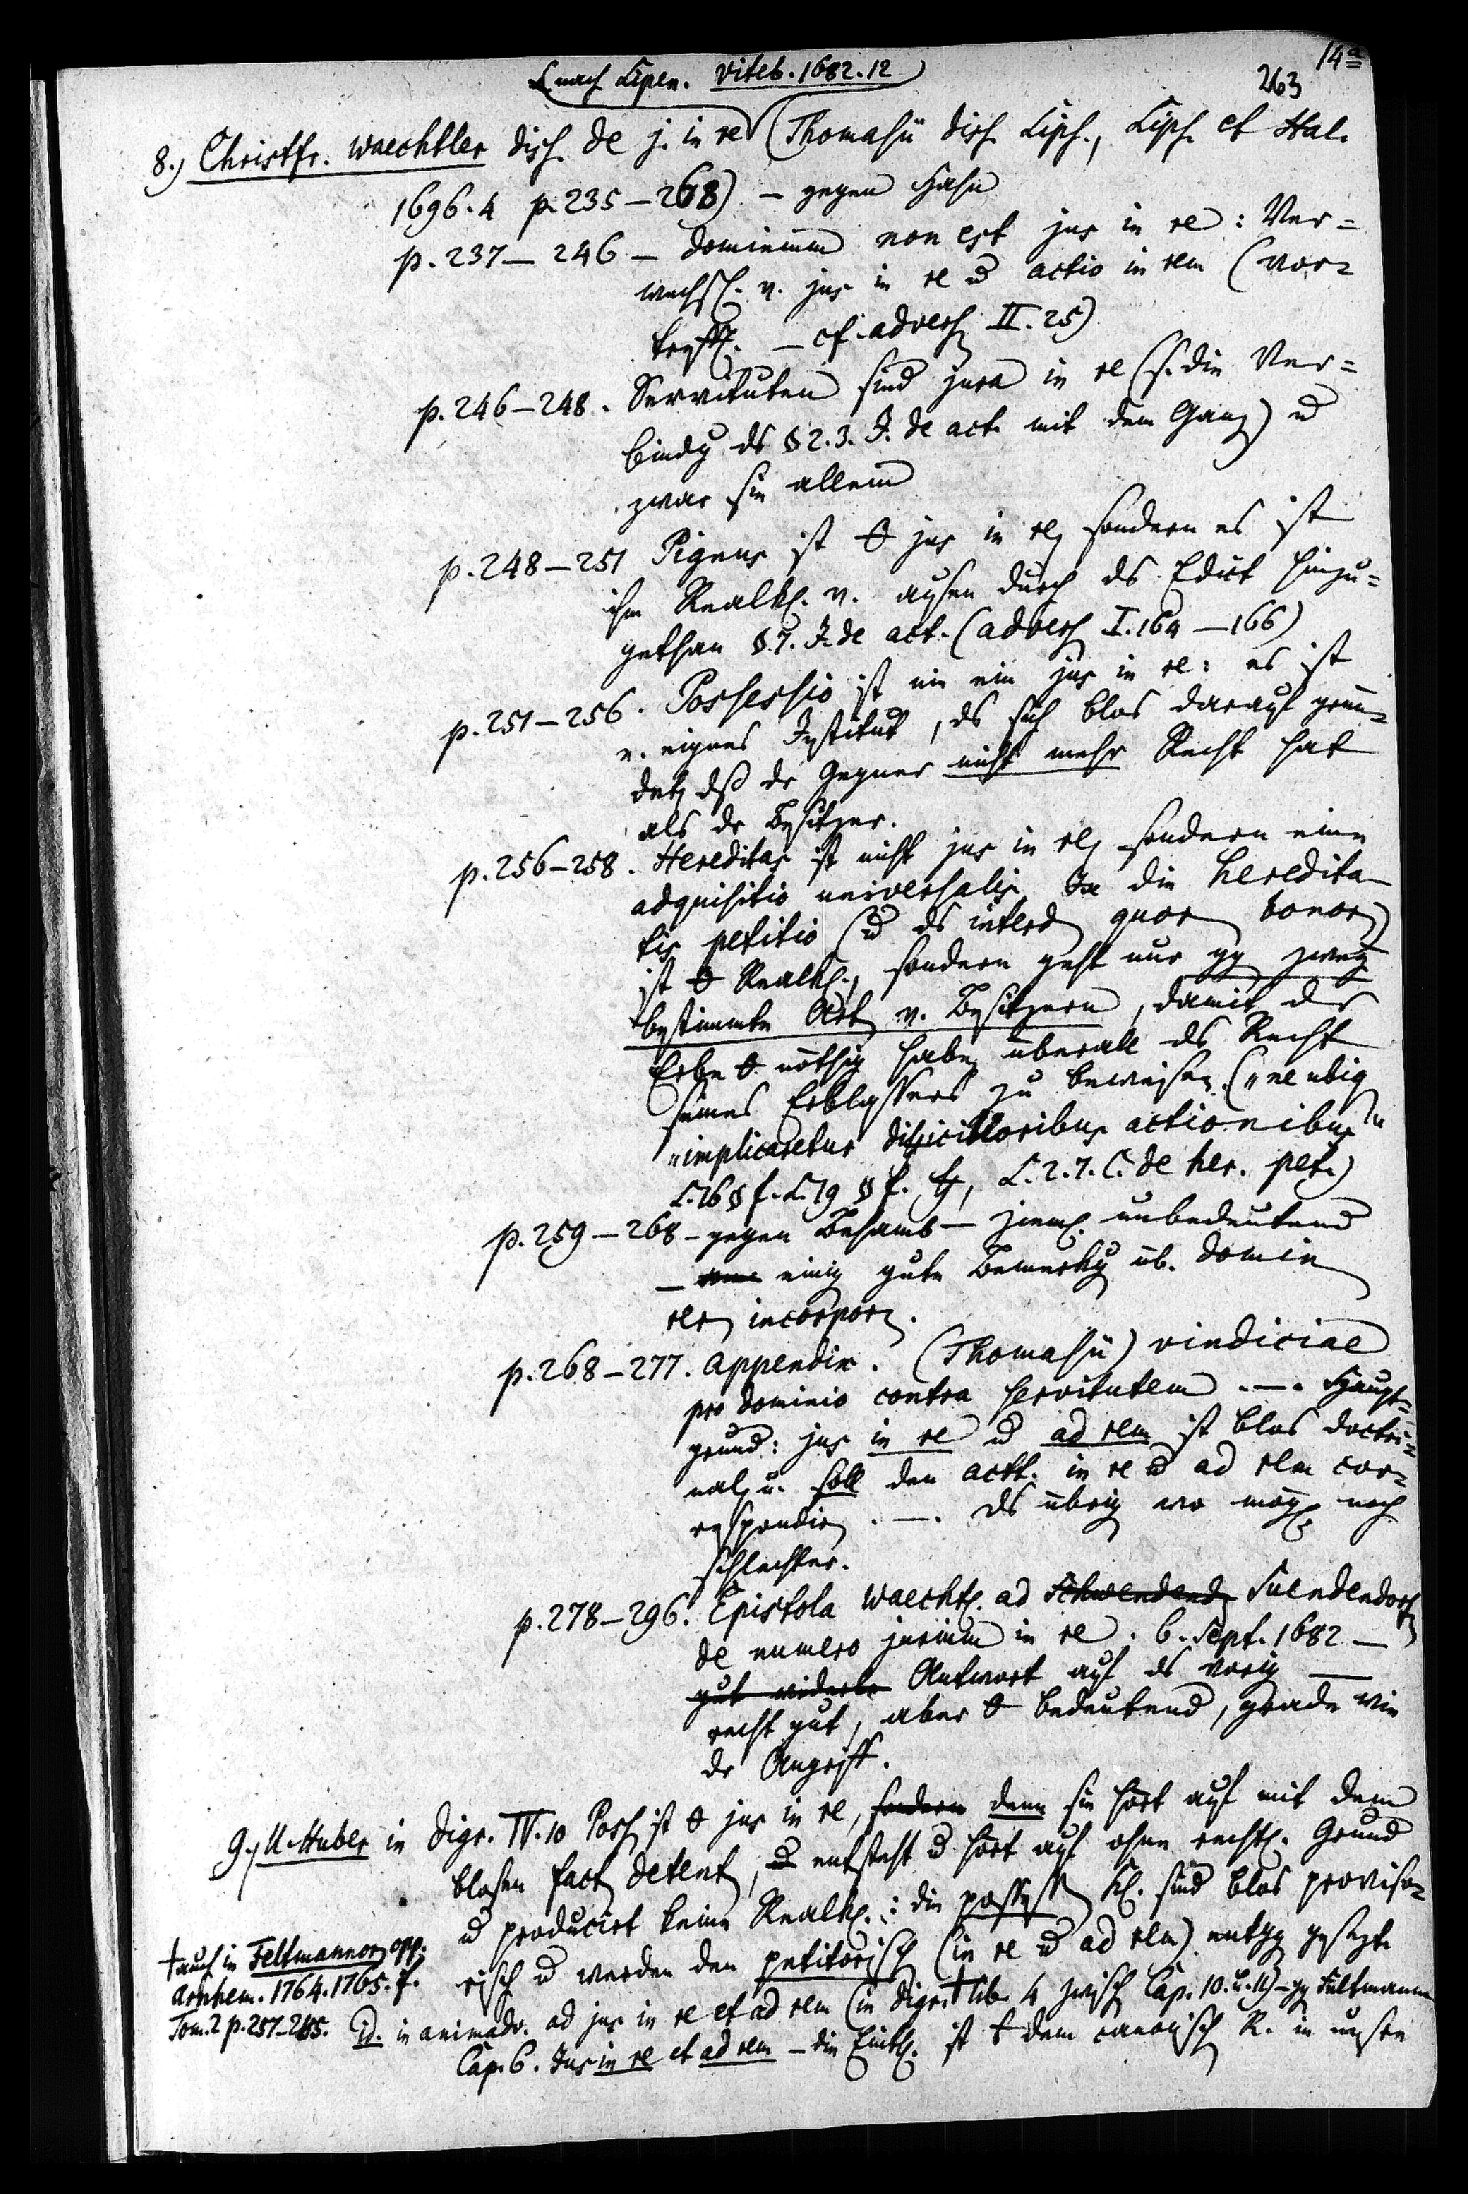 14a
263
(nach Lipen. Viteb. 1682. 12)
8.) Christfr. Waechtler diss. de j. in re (Thomasii diss. Lips., Lips. et Hal.
1696. 4 p. 235–268) – gegen Hahn
p. 237–246 – dominium non est jus in re: Ver=
wechsl. v. jus in re u actio in rem (vor=
treffl. – cf. advers. II. 25)
p. 246–248. Servituten sind jura in re (s. die Ver=
bindg ds § 2. 3. J. de act. mit dem Ganz) u
zwar sie allein
p. 248–251 Pignus ist jus in re, sondern es ist
ihm Realkl. v. aussen durch ds Edict hinzu=
gethan §. 7. J. de act. (advers I. 164–166)
p. 251–256. Possessio ist nie ein jus in re: es ist
e. eignes Institut, ds sich blos darauf grün=
det, dß dr Gegner nicht mehr Recht hat
als dr Besitzer.
p. 256–258. Hereditas ist nicht jus in re, sondern eine
adquisitio universalis. Ja die heredita=
tis petitio (u ds interd quor bonor)
ist Realkl., sondern geht nur gg zwey
bestimmte Art v. Besitzern, damit der
Erbe nöthig habe, überall ds Recht
seines Erblassers zu beweisen. („ne ubiq
„implicaretur difficilioribus actionibus"
L. 16 § f. L. 19 § f. h, L. 2. 7. C. de her. pet.)
p. 259–268 – gegen Behamb – zieml. unbedeutend
– einig gute Bemerkg üb. domin
rer incorpor.
p. 268–277. Appendix. (Thomasii) vindiciae
pro dominio contra servitutem. –. Haupt=
grund: jus in re u ad rem ist blos doctri=
nal, u. soll den actt. in re u ad rem cor=
respondir. –. Ds übrig wo mögl. noch
schlechter.
p. 278–296. Epistola Waechtl. ad Schwendend Suendendorf
de numero jurium in re. 6. Sept. 1682 –
gut widerle Antwort auf ds vorig –
recht gut, aber bedeutend, grade wie
dr Angriff.
9.) U. Huber in digr. IV. 10 Poss ist jus in re, sondern denn sie hört auf mit dem
blosen fact detent, u entsteht u hört auf ohne rechtl. Grund
u producirt keine Realkl.: die possess Kl. sind blos proviso=
risch u werden den petitorisch (in re u ad rem) entgg gesezt
† auch in Feltmannor opp.
Arnhem. 1764. 1765. f.
Tom. 2 p. 257–285.
Id. in animadv. ad jus in re et ad rem (in digr. † lib. 4 zwisch Cap. 10. u. 11) – gg Feltmann
Cap. 6. Jus in re et ad rem – die Eintl. ist dem canonisch R. in unsre